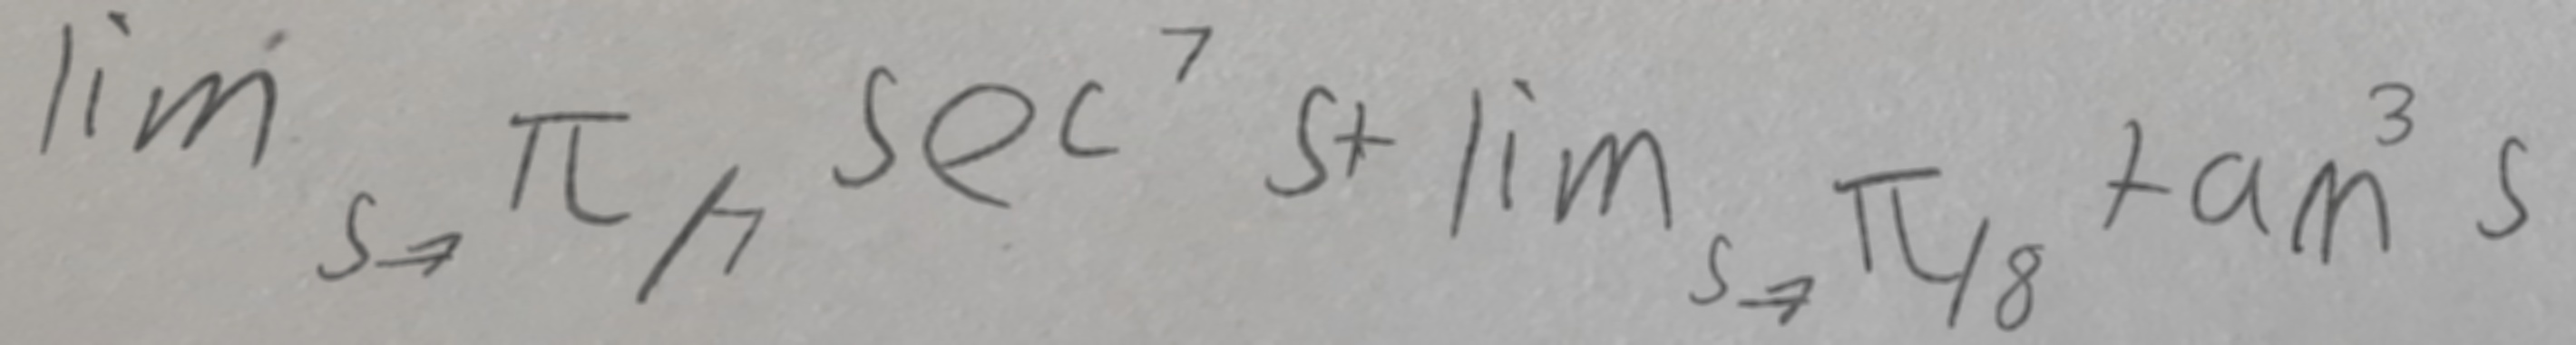 lim s→π/7 sec⁷ s + lim s→π/8 tan³ s